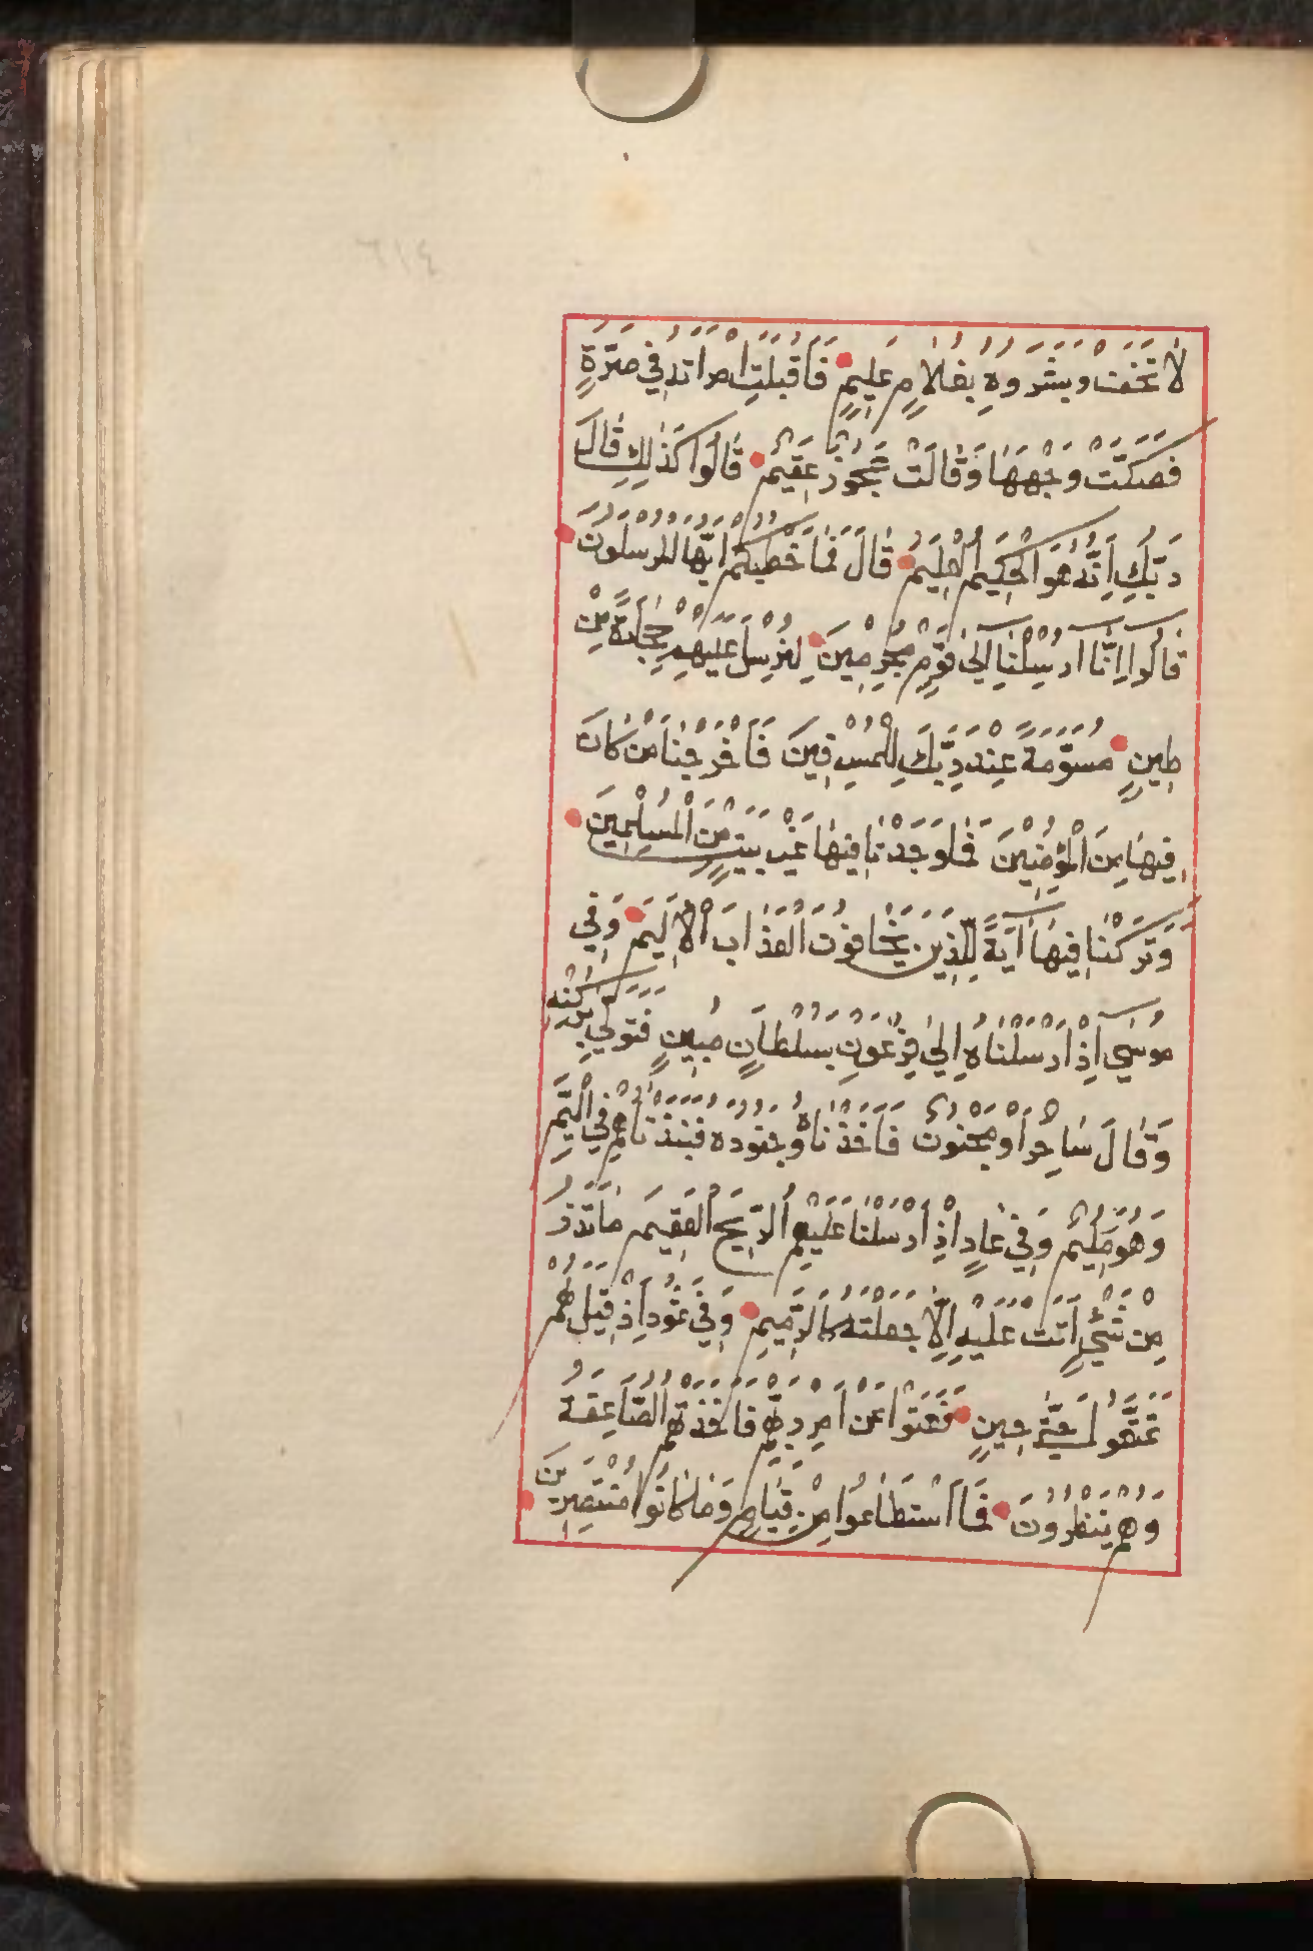 لَا تَخَفْ وَبَشَّرُوهُ بِغُلَامٍ عَلِيمٍ فَاَقْبَلَتِ امْرَاَتُهُ فِي صَرَّةٍ
فَصَكَّتْ وَجْهَهَا وَقَالَتْ عَجُوزٌ عَقِيمٌ قَالُوا كَذٰلِكِ قَالَ
رَبُّكِ اِنَّهُ هُوَ الْحَكِيمُ الْعَلِيمُ قَالَ فَمَا خَطْبُكُمْ اَيُّهَا الْمُرْسَلُونَ
قَالُوا اِنَّا اُرْسِلْنَا اِلَى قَوْمٍ مُجْرِمِينَ لِنُرْسِلَ عَلَيْهِمْ حِجَارَةً مِنْ
طِينٍ مُسَوَّمَةً عِنْدَ رَبِّكَ لِلْمُسْرِفِينَ فَاَخْرَجْنَا مَنْ كَانَ
فِيهَا مِنَ الْمُؤْمِنِينَ فَمَا وَجَدْنَا فِيهَا غَيْرَ بَيْتٍ مِنَ الْمُسْلِمِينَ
وَتَرَكْنَا فِيهَا آيَةً لِلَّذِينَ يَخَافُونَ الْعَذَابَ الْاَلِيمَ وَفِي
مُوسَى اِذْ اَرْسَلْنَاهُ اِلَى فِرْعَوْنَ بِسُلْطَانٍ مُبِينٍ فَتَوَلَّى بِرُكْنِهِ
وَقَالَ سَاحِرٌ اَوْ مَجْنُونٌ فَاَخَذْنَاهُ وَجُنُودَهُ فَنَبَذْنَاهُمْ فِي الْيَمِّ
وَهُوَ مُلِيمٌ وَفِي عَادٍ اِذْ اَرْسَلْنَا عَلَيْهِمُ الرِّيحَ الْعَقِيمَ مَا تَذَرُ
مِنْ شَيْءٍ اَتَتْ عَلَيْهِ اِلَّا جَعَلَتْهُ كَالرَّمِيمِ وَفِي ثَمُودَ اِذْ قِيلَ لَهُمْ
تَمَتَّعُوا حَتَّى حِينٍ فَعَتَوْا عَنْ اَمْرِ رَبِّهِمْ فَاَخَذَتْهُمُ الصَّاعِقَةُ
وَهُمْ يَنْظُرُونَ فَمَا اسْتَطَاعُوا مِنْ قِيَامٍ وَمَا كَانُوا مُنْتَصِرِينَ